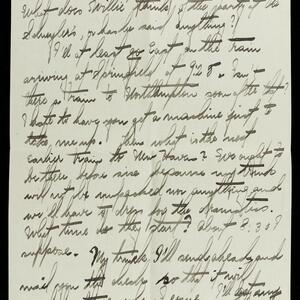 What does Willie think of the party at the
and has he said anything?
I'll at least go East on the train
arriving at Springfield at 9:28. Isn't
there a train to Northampton soon after
I hate to have you get a machine just to
take me up. Then what is the next
earlier train to New Haven? We ought to
be there because my trunk
will not be unpacked nor anything and
we'll have to dress for the
What time do they start? About 8:30 I
suppose. My trunk I'll send ahead and
mail you the checks so that it will